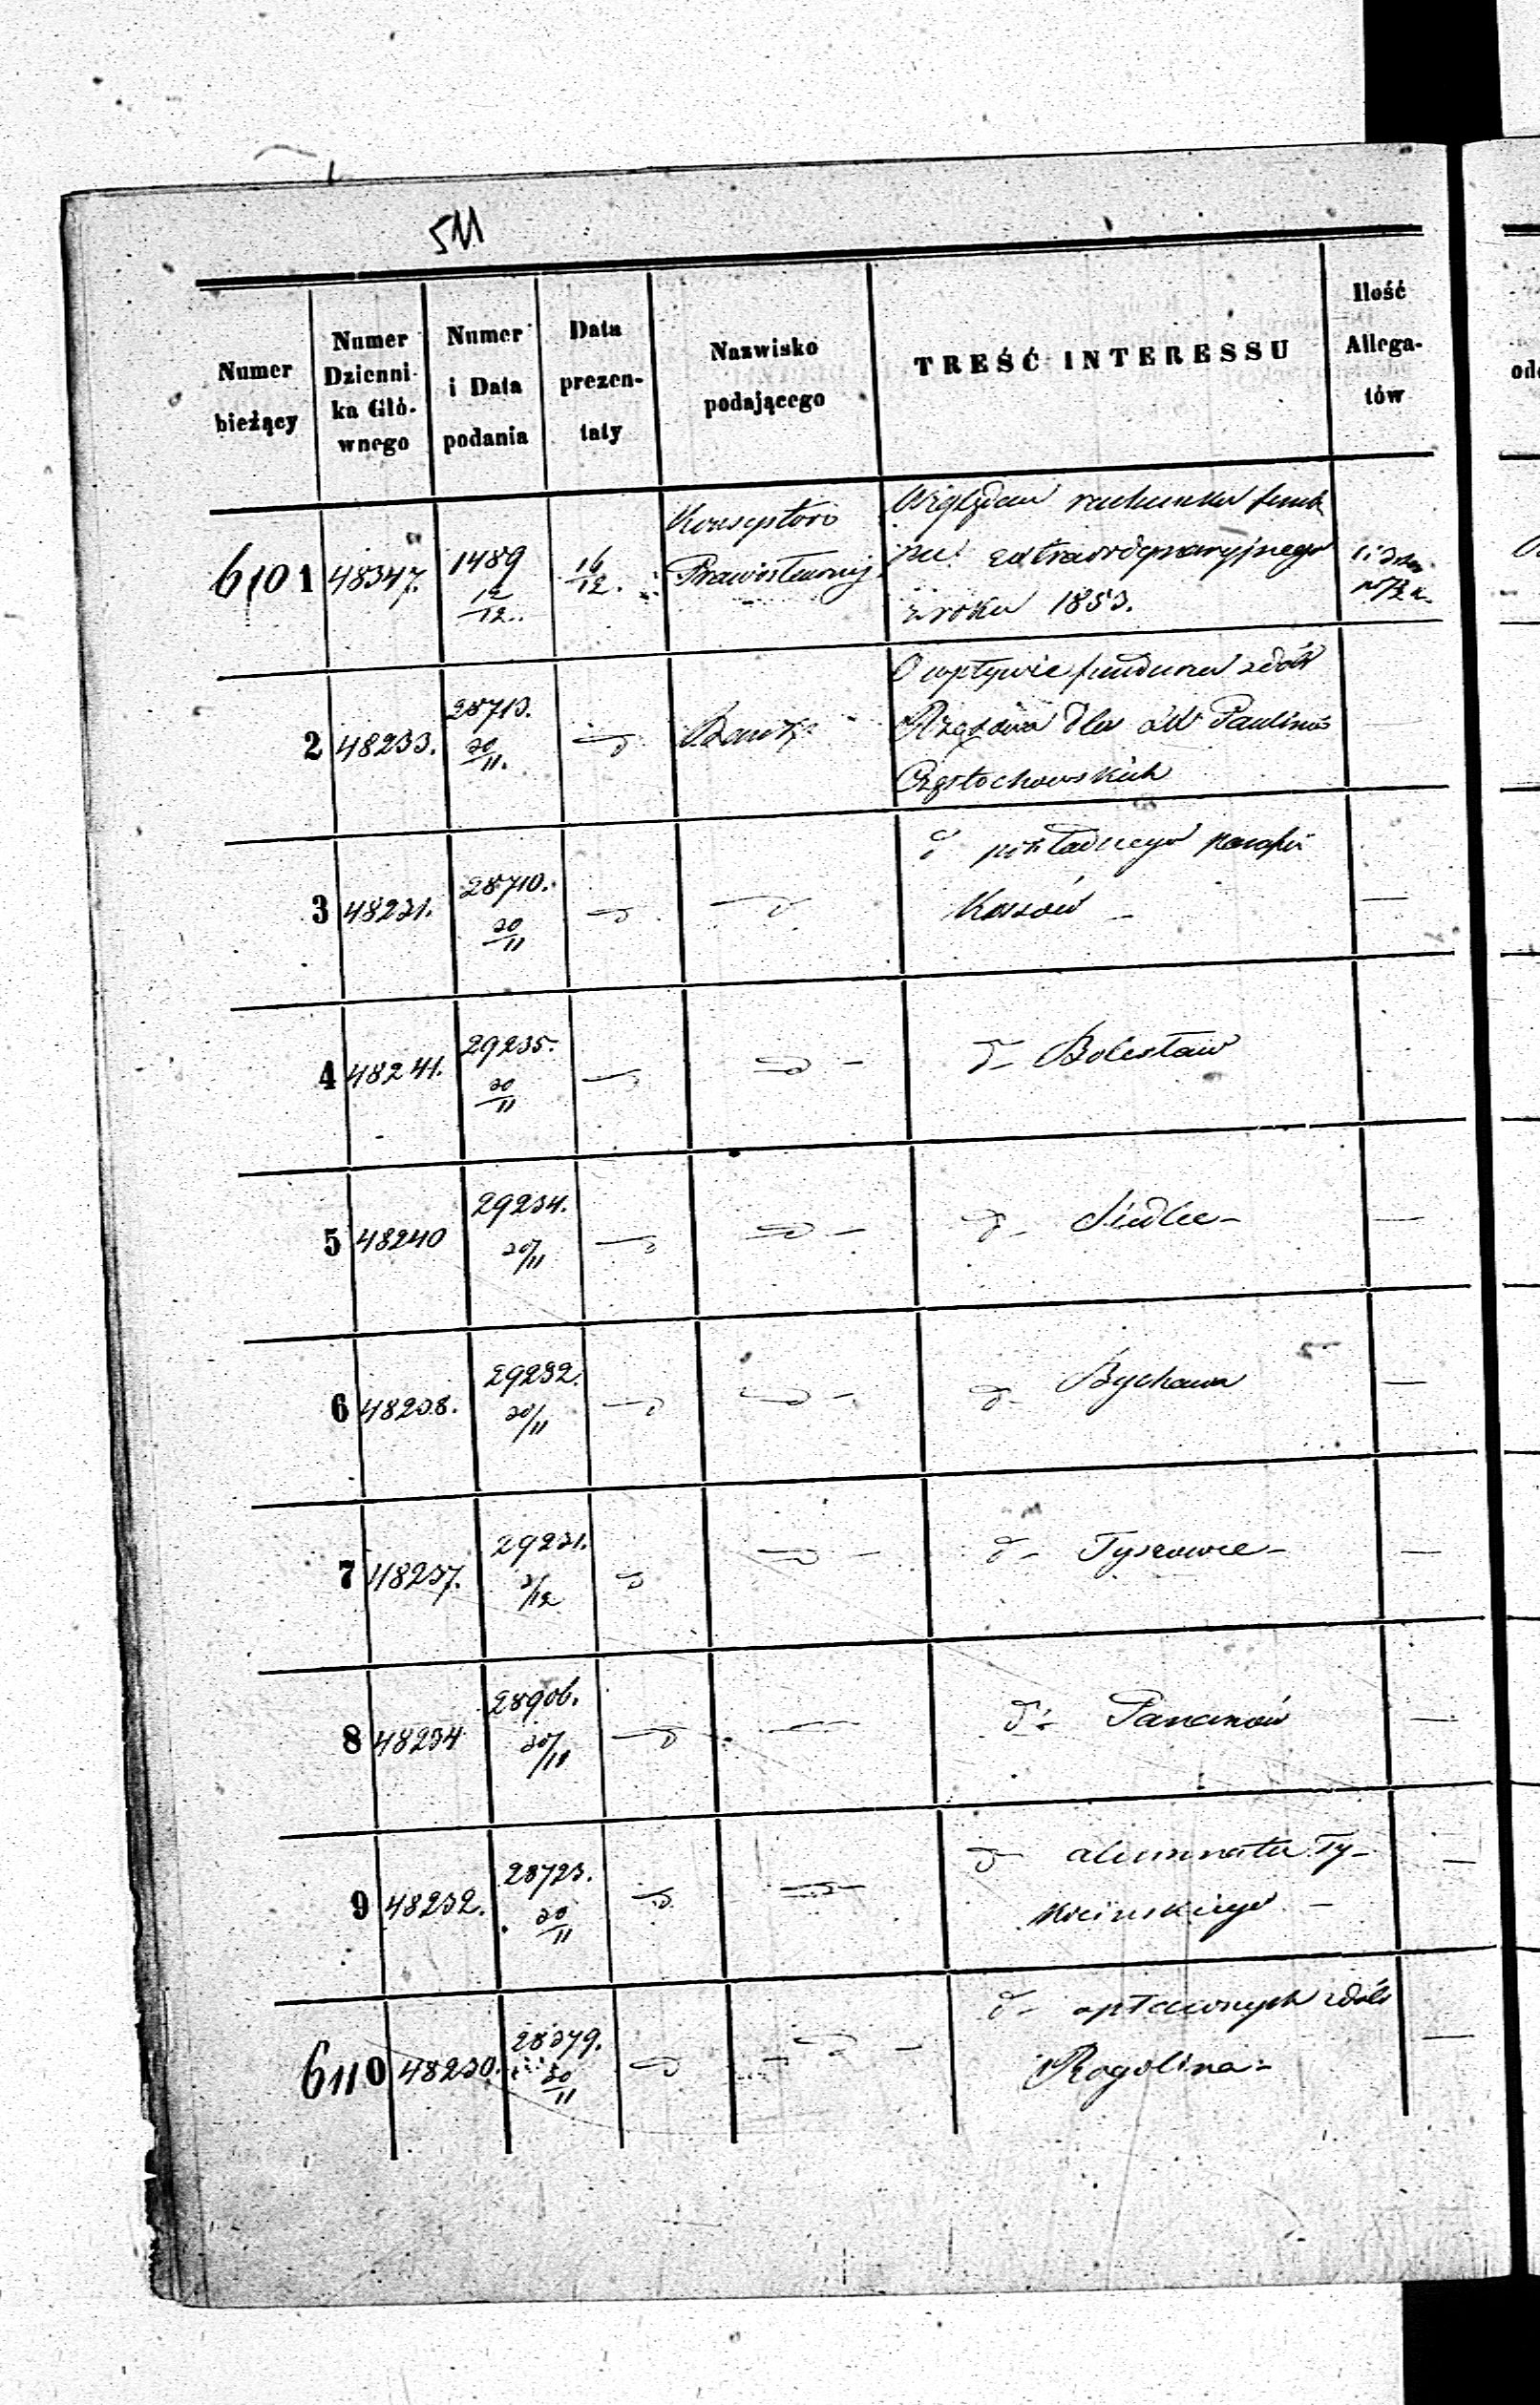 511
Numer
bieżący
Numer
Dzienni-
ka Głó-
wnego
Numer
i Data
podania
Data
prezen-
taty
Nazwisko
podającego
TREŚĆ INTERESSU
Ilość
Allega-
tów
6101
48347.
1489
12
12.
16
12.
Prawosławnej
Względem rachunku
extraordynaryjnego
z roku 1853.
2
48233.
28713.
30
11.
d
Bank
O wpływie funduszu z dóbr
dla XX Paulinów
Częstochowskich
3
48231.
28710.
30
11
d
d
d pokładnego parafii
Kossów
4
48241.
29235.
30
11
d
d Bolesław
5
48240
29234.
30/11
d
d
d Siedlce
6
48238.
29232.
30/11
d
d
d Bychawa
7
48237.
29231.
2/12
d
d
d Tyszowce
8
48234
28906.
30/11
d
d Pacanów
9
48232.
28723.
30
11
d
d
d alumnatu Ty-
kocińskiego
6110
48230.
28379.
30
11
d
d
d z dóbr
Rogolina